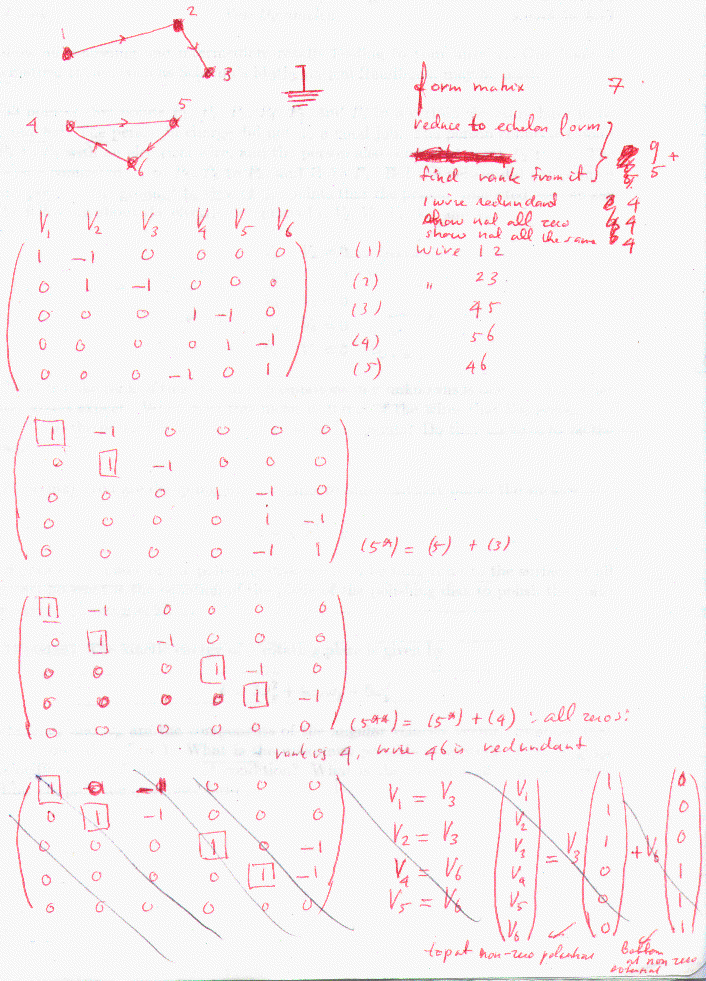 1 2 3
4 5 6
form matrix 7
reduce to echelon form
find rank from it 9 5 +
1 wire redundant 4
show not all zero 4
show not all the same 4
V1 V2 V3 V4 V5 V6
1 -1 0 0 0 0 (1) wire 12
0 1 -1 0 0 0 (2) " 23
0 0 0 1 -1 0 (3) 45
0 0 0 0 1 -1 (4) 56
0 0 0 -1 0 1 (5) 46
1 -1 0 0 0 0
0 1 -1 0 0 0
0 0 0 1 -1 0
0 0 0 0 1 -1
0 0 0 0 -1 1 (5*) = (5) + (3)
1 -1 0 0 0 0
0 1 -1 0 0 0
0 0 0 1 -1 0
0 0 0 0 1 -1
0 0 0 0 0 0 (5**) = (5*) + (4) : all zeros:
rank is 4, wire 46 is redundant
1 0 -1 0 0 0
0 1 -1 0 0 0
0 0 0 1 0 -1
0 0 0 0 1 -1
0 0 0 0 0 0
V1 = V3
V2 = V3
V4 = V6
V5 = V6
V1 V2 V3 V4 V5 V6 = V3 1 1 1 0 0 0 + V6 0 0 0 1 1 1
top at non-zero potential
bottom at non zero potential